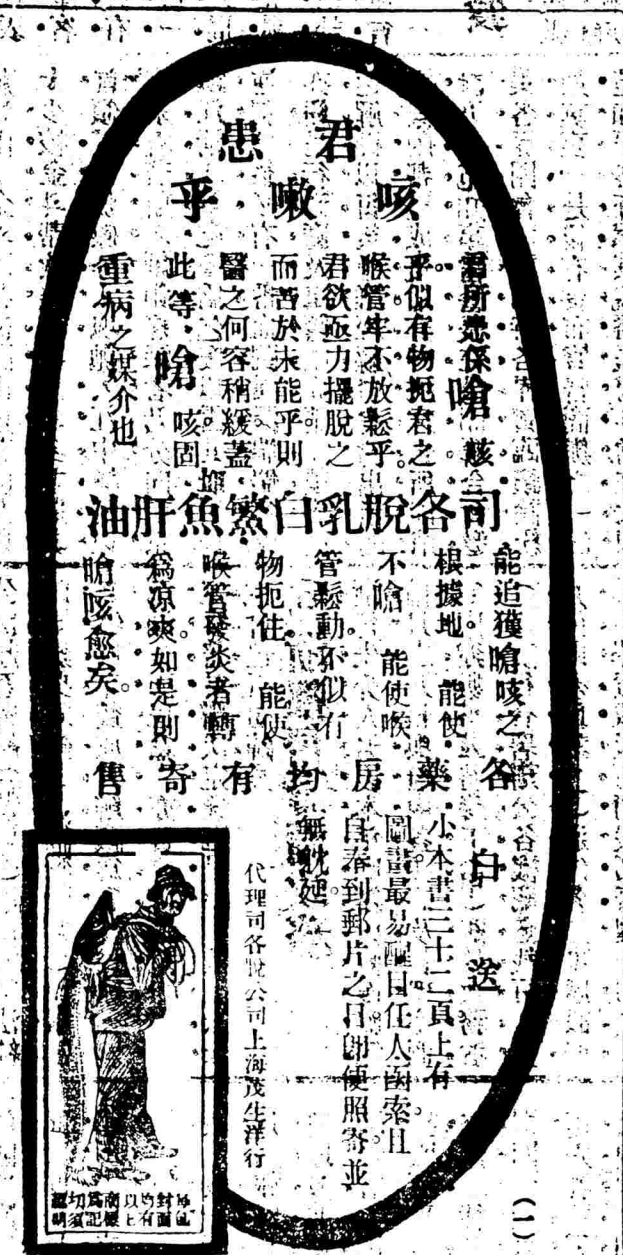 君患
咳嗽乎
君所患係嗆咳
乎。似有物扼君之
喉管牢不放鬆乎。
君欲亟力擺脫之
而苦於未能乎。則
醫之何容稍緩。蓋
此等嗆咳固
重病之媒介也
司各脫乳白鰵魚肝油
能追獲嗆咳之
根據地。能使
不嗆 能使喉
管鬆動不似有
物扼住。能使
喉管發炎者轉
為凉爽。如是則
嗆咳愈矣。
各藥房均有寄售
白送
小本書三十二頁上有
圖畫最易醒目任人函索且
自奉到郵片之日卽便照寄並
無躭延。
代理司各脫公司上海茂生洋行
封面
均有
以上
商標
為記
切須
認明
(一)